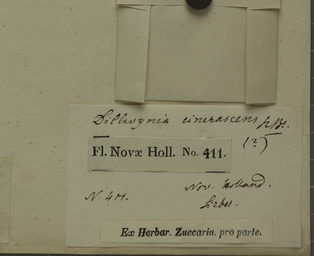 Dillwynia cinerascens R.Br.
(2)
Fl. Novæ Holl. No. 411.
Nov. Holland.
N. 411.
Sieber.
Ex Herbar. Zuccarin. pro parte.